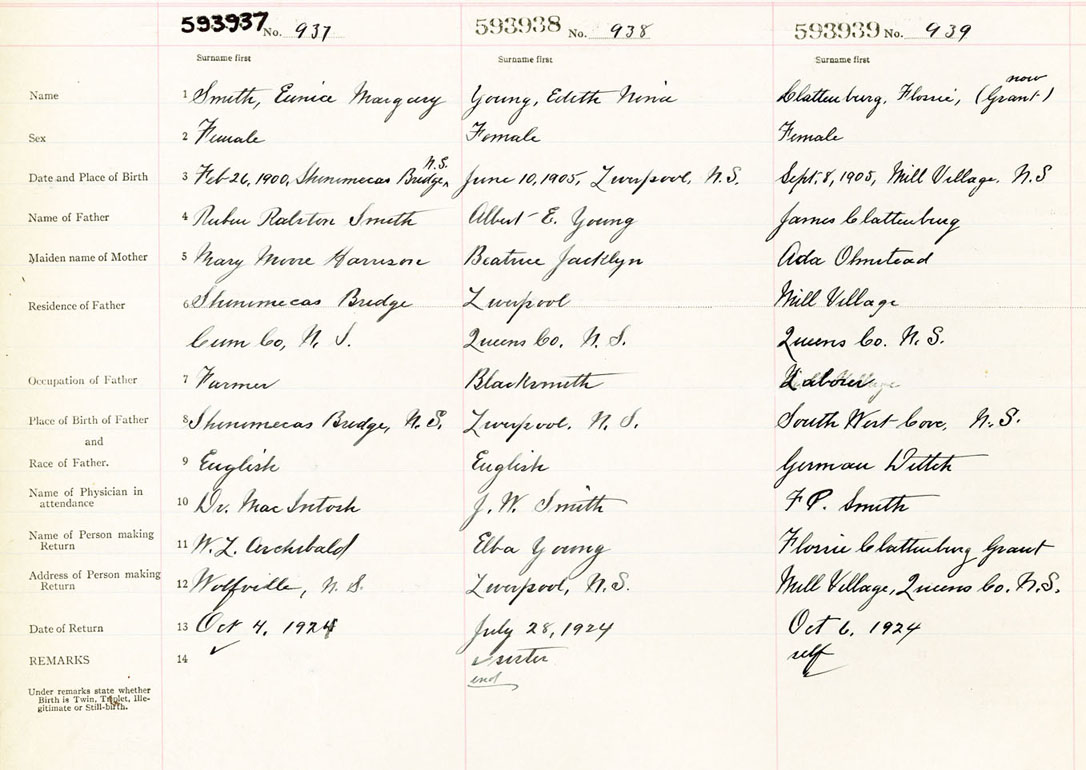 593937 No. 937 593938 No. 938 593939 No. 939
Surname first Surname first Surname first
now
Name 1 Smith, Eunice Margary Young, Edith Nina Clattenburg, Florrie, (Grant)
Sex 2 Female Female Female
N.S.
Date and Place of Birth 3 Feb 26, 1900, Shinimecas Bridge, June 10, 1905, Liverpool, N.S. Sept. 8, 1905, Mill Village. N.S
Name of Father 4 Ruben Ralston Smith Albert E. Young James Clattenburg
Maiden name of Mother 5 Mary Moore Harrison Beatrice Jacklyn Ada Olmstead
Residence of Father 6 Shinimecas Bridge Liverpool Mill Village
Cum Co, N. S. Queens Co. N. S. Queens Co. N. S.
Occupation of Father 7 Farmer Blacksmith Laborer
Place of Birth of Father 8 Shinimecas Bridge, N.S. Liverpool. N. S. South West Cove, N.S.
and
Race of Father. 9 English English German Dutch
Name of Physician in
attendance 10 Dr. MacIntosh J. W. Smith F P. Smith
Name of Person making
Return 11 W. L. Archibald Elba Young Florrie Clattenburg Grant
Address of Person making
Return 12 Wolfville, N. S. Liverpool, N.S. Mill Village, Queens Co. N.S.
Date of Return 13 Oct 4. 1924 July 28, 1924 Oct 6. 1924
REMARKS 14 sister self
end
Under remarks state whether
Birth is Twin, Triplet, Ille-
gitimate or Still-birth.